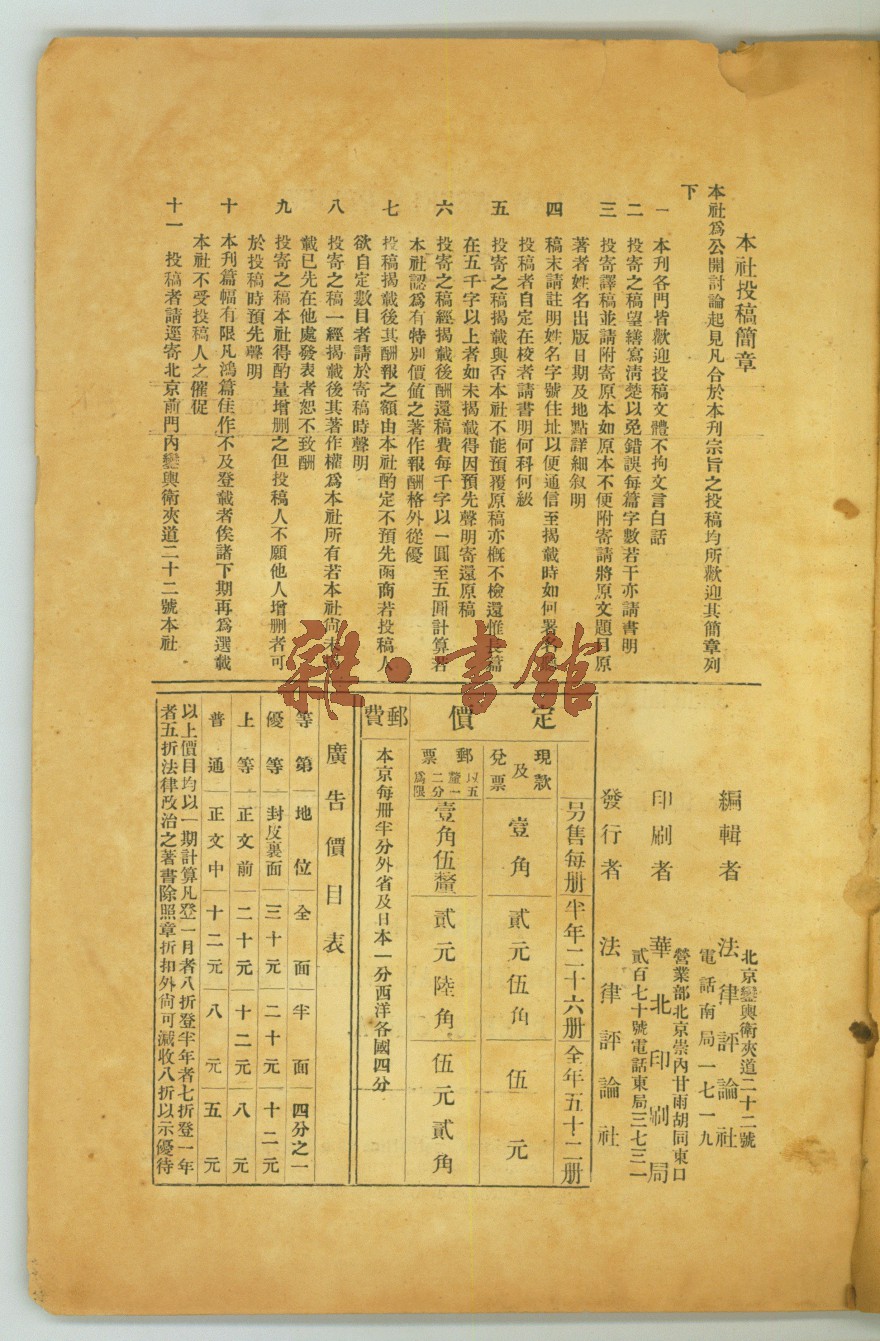 本社投稿簡章
本社爲公開討論起見凡合於本刊宗旨之投稿均所歡迎其簡章列
下
一 本刊各門皆歡迎投稿文體不拘文言白話
二 投寄之稿望繕寫清楚以免錯誤每篇字數若干亦請書明
三 投寄譯稿並請附寄原本如原本不便附寄請將原文題目原
著者姓名出版日期及地點詳細叙明
四 稿末請註明姓名字號住址以便通信至揭載時如何署名
投稿者自定在校者請書明何科何級
五 投寄之稿揭載與否本社不能預覆原稿亦概不檢還惟長篇
在五千字以上者如未揭載得因預先聲明寄還原稿
六 投寄之稿經揭載後酬還稿費每千字以一圓至五圓計算若
本社認爲有特別價值之著作報酬格外從優
七 投稿揭載後其酬報之額由本社酌定不預先函商若投稿人
欲自定數目者請於寄稿時聲明
八 投寄之稿一經揭載後其著作權爲本社所有若本社尚未
載已先在他處發表者恕不致酬
九 投寄之稿本社得酌量增删之但投稿人不願他人增删者可
於投稿時預先聲明
十 本刊篇幅有限凡鴻篇佳作不及登載者俟諸下期再爲選載
本社不受投稿人之催促
十一 投稿者請逕寄北京前門內鑾輿衛夾道二十二號本社
雜·書館
編輯者 法律評論社
北京鑾輿衛夾道二十二號
電話南局一七一九
印刷者 華北印刷局
營業部北京崇內甘雨胡同東口
貳百七十號電話東局三七三一
發行者 法律評論社
定價
另售每册 半年二十六册 全年五十二册
現款及兌票 壹角 貳元伍角 伍元
郵票 以五釐一分二分爲限 壹角伍釐 貳元陸角 伍元貳角
郵費 本京每册半分外省及日本一分西洋各國四分
廣告價目表
等第 地位 全面 半面 四分之一
優等 封皮裏面 三十元 二十元 十二元
上等 正文前 二十元 十二元 八元
普通 正文中 十二元 八元 五元
以上價目均以一期計算凡登一月者八折登半年者七折登一年
者五折法律政治之著書除照章折扣外尚可減收八折以示優待